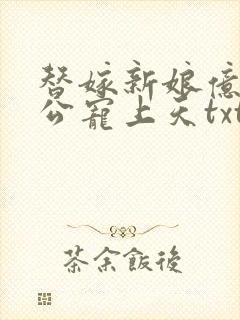 替嫁新娘億
公寵上天txt
茶余飯後